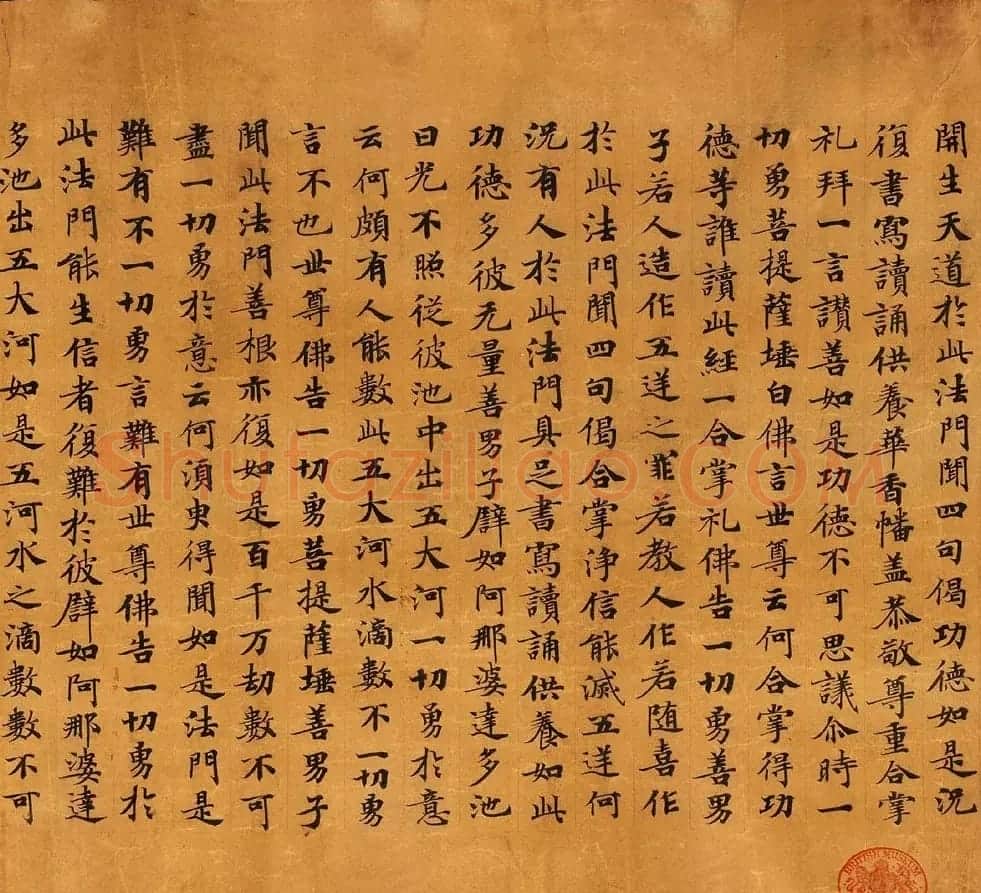 開生天道於此法門聞四句偈功德如是況
復書寫讀誦供養華香幡盖恭敬尊重合掌
礼拜一言讃善如是功德不可思議尒時一
切勇菩提薩埵白佛言世尊云何合掌得功
德等誰讀此經一合掌礼佛告一切勇善男
子若人造作五逆之罪若教人作若随喜作
於此法門聞四句偈合掌淨信能滅五逆何
況有人於此法門具足書寫讀誦供養如此
功德多彼无量善男子譬如阿那婆達多池
日光不照從彼池中出五大河一切勇於意
云何頗有人能數此五大河水滴數不一切勇
言不也世尊佛告一切勇菩提薩埵善男子
聞此法門善根亦復如是百千万劫數不可
盡一切勇於意云何須臾得聞如是法門是
難有不一切勇言難有世尊佛告一切勇於
此法門能生信者復難於彼譬如阿那婆達
多池出五大河如是五河水之滴數數不可
Shufaziliao.COM
BRITISH MUSEUM